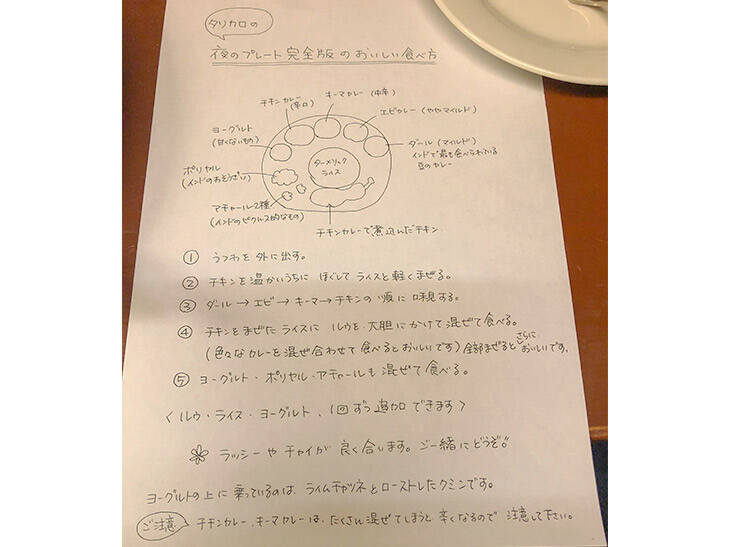 タリカロの
夜のプレート完全版のおいしい食べ方
チキンカレー
(辛口)
キーマカレー(中辛)
エビカレー(ややマイルド)
ヨーグルト
(甘くないもの)
ダール(マイルド)
インドで最も食べられている
豆のカレー
ターメリック
ライス
ポリヤル
(インドのおそうざい)
アチャール2種
(インドのピクルス的なもの)
チキンカレーで煮込んだチキン
① うつわを外に出す。
② チキンを温かいうちにほぐしてライスと軽くまぜる。
③ ダール→エビ→キーマ→チキンの順に味見する。
④ チキンをまぜたライスにルウを大胆にかけて混ぜて食べる。
(色々なカレーを混ぜ合わせて食べるとおいしいです)全部まぜるとさらにおいしいです。
⑤ ヨーグルト・ポリヤル・アチャールも混ぜて食べる。
〈ルウ・ライス・ヨーグルト、1回ずつ追加できます〉
ラッシーやチャイが良く合います。ご一緒にどうぞ。
ヨーグルトの上に乗っているのは、ライムチャツネとローストしたクミンです。
ご注意 チキンカレー、キーマカレーは、たくさん混ぜてしまうと辛くなるので注意して下さい。